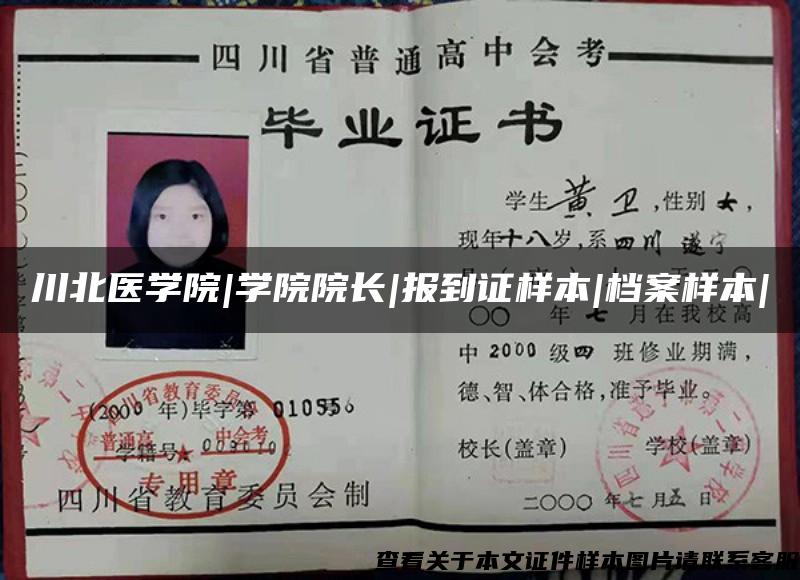 四川省普通高中会考
毕业证书
学生黄卫,性别女,
现年十八岁,系四川 遂宁
川北医学院|学院院长|报到证样本|档案样本|
年七月在我校高
中2000级四 班修业期满,
德、智、体合格,准予毕业。
校长(盖章) 学校(盖章)
二〇〇〇年七月五日
(2000年)毕学第 010556
学籍号
四川省教育委员会
普通高 中会考
专用章
四川省教育委员会制
查看关于本文证件样本图片请联系客服